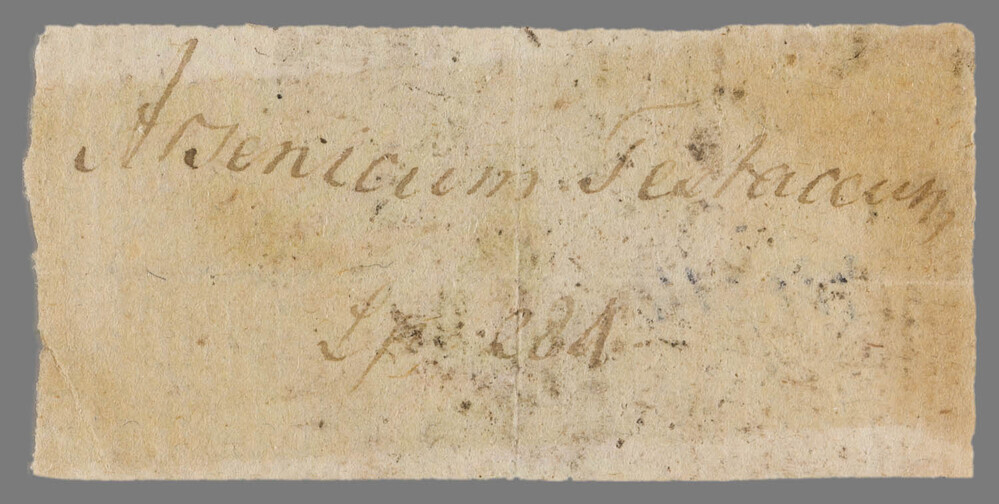 Arsenicum Testaceum,
Sp. 284.